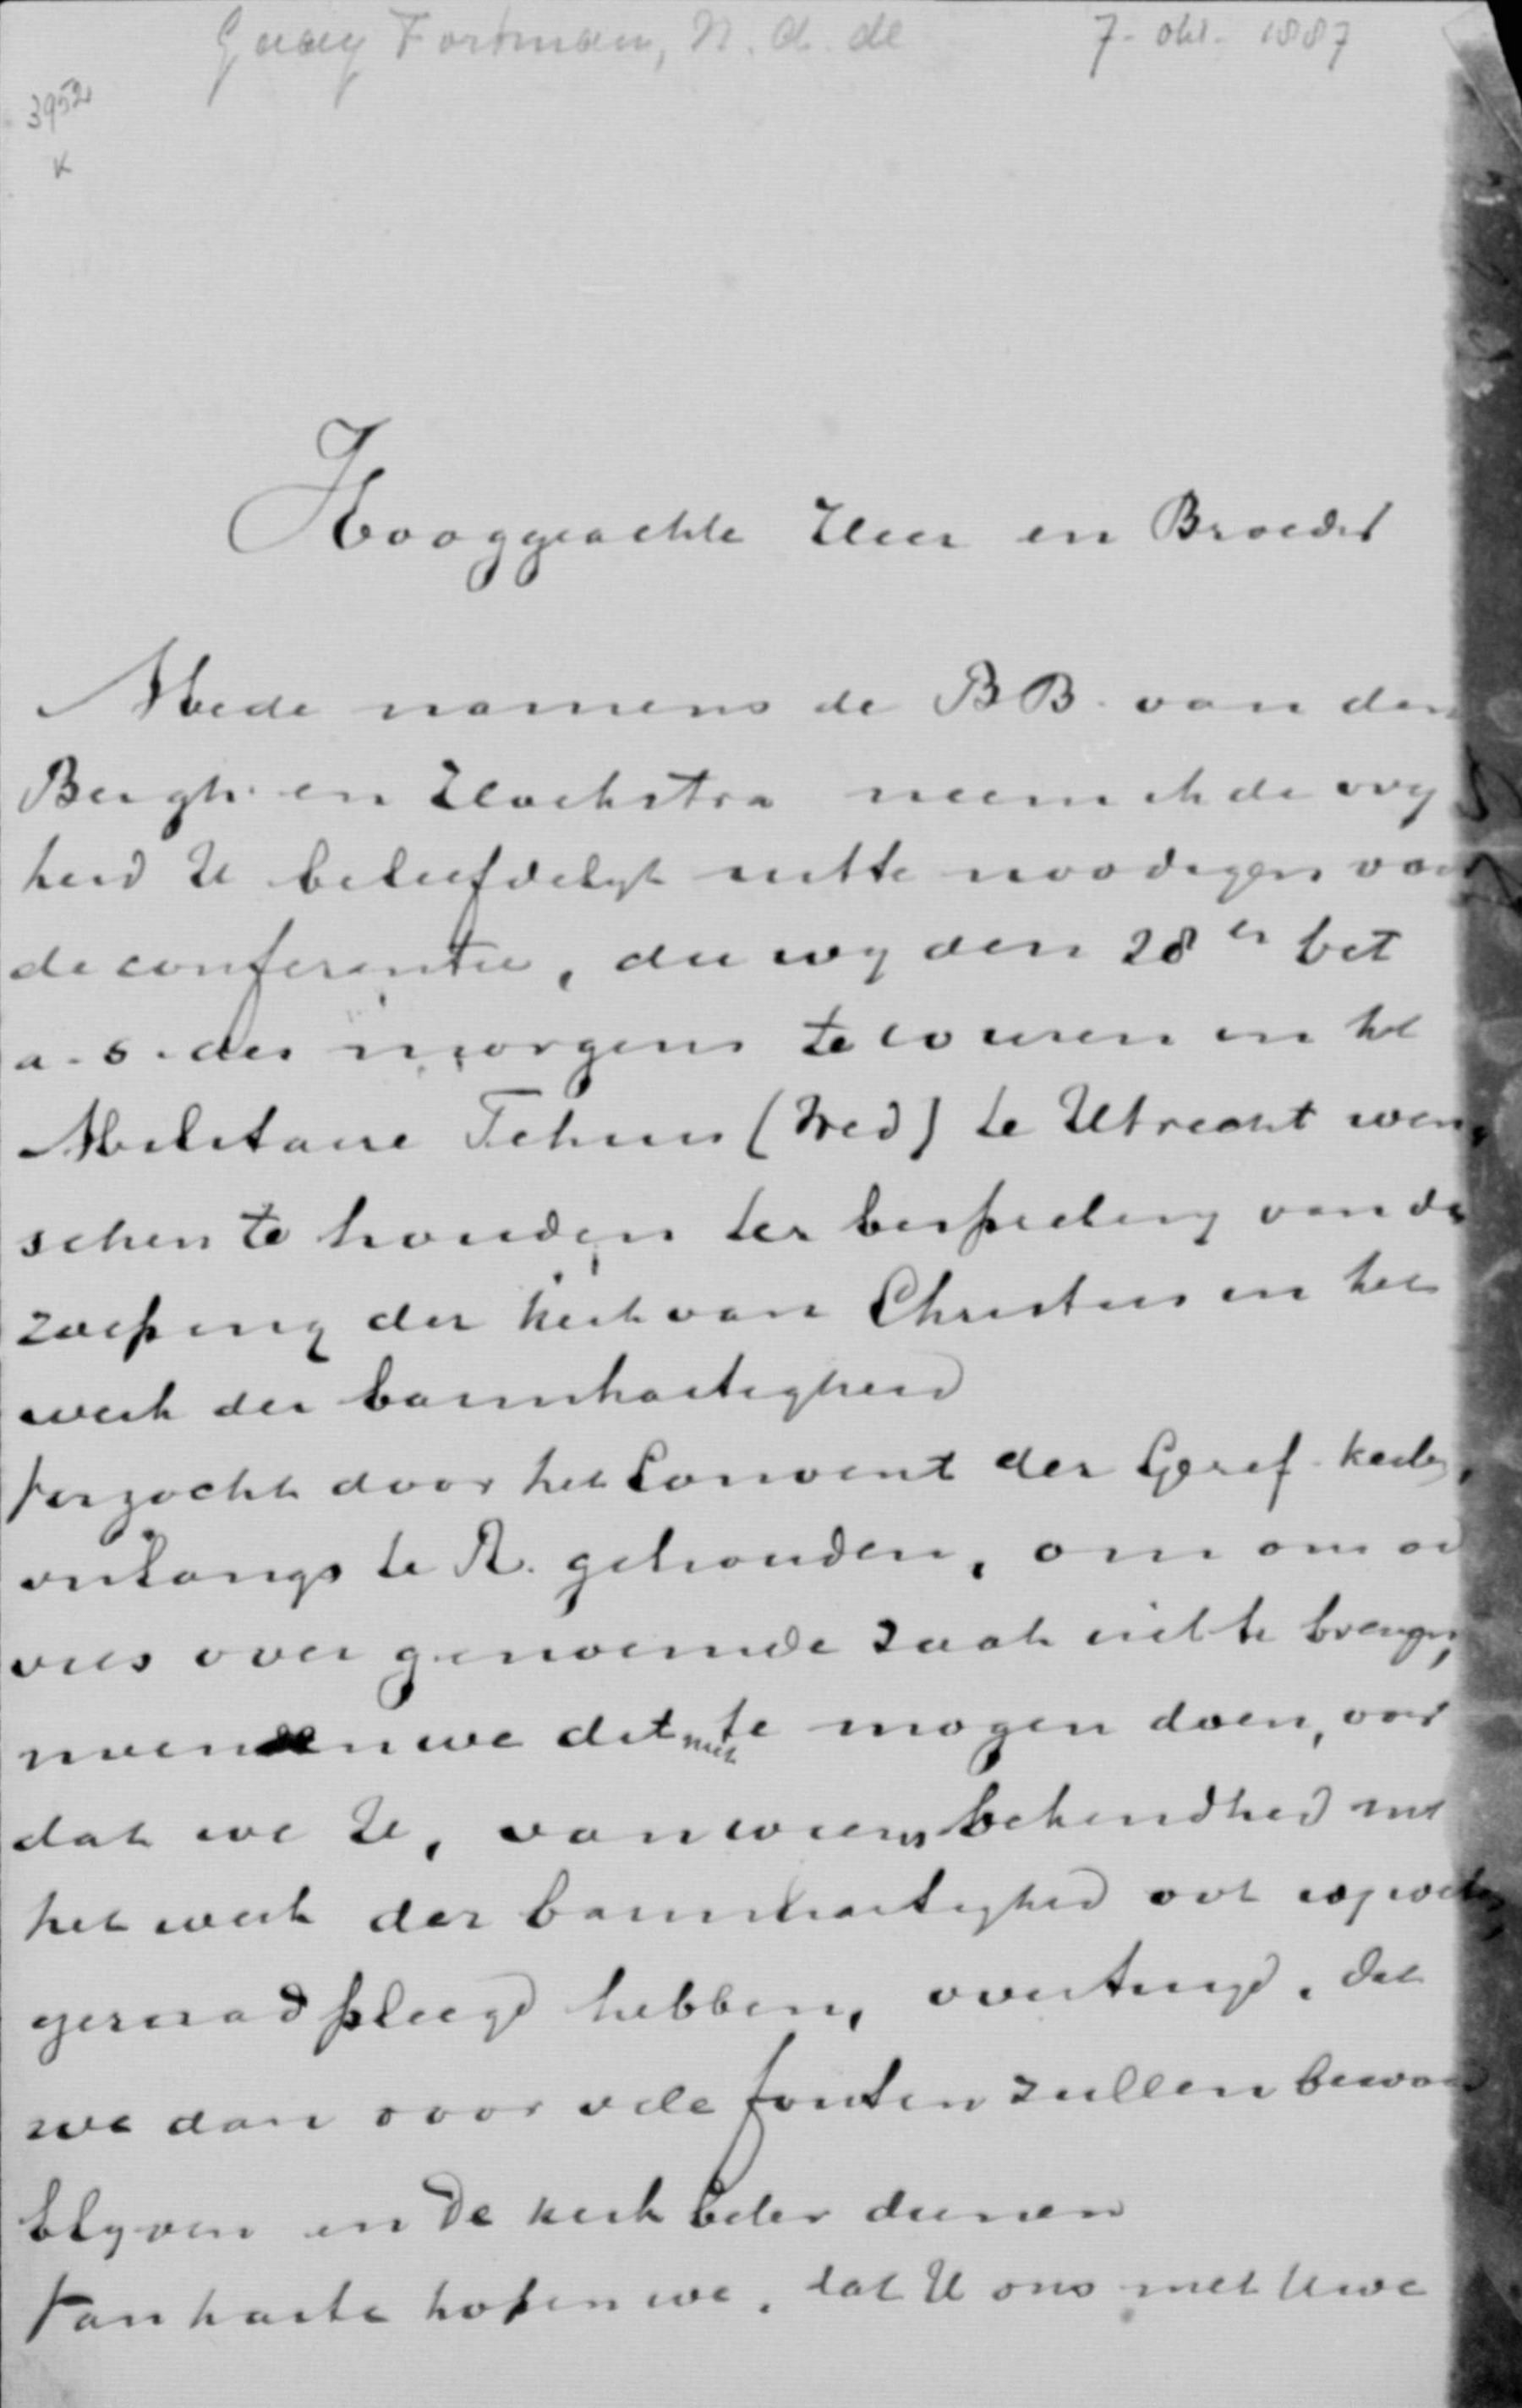 Gaay Fortman, N. A. de 7 - okt - 1887
3952
K
Hooggeachte Heer en Broeder
Mede namens de BB. van den
Bergh en Hoekstra neem ik de vrij
heid U beleefdelijk uit te noodigen voor
de conferentie, die wij den 28en Oct
a.s. des morgens te 10 uren in het
Militaire Tehuis (Wed) te Utrecht wen,
schen te houden ter bespreking van de
roeping der kerk van Christus in het
werk der barmhartigheid
Verzocht door het Convent der Geref. kerken,
onlangs te R. gehouden, om om ad
vies over genoemde zaak uit te brengen,
meenden we dit niet te mogen doen, voor
dat we U, van wiens bekendheid met
het werk der barmhartigheid ook wij weten,
geraadpleegd hebben, overtuigd, dat
we dan voor vele fouten zullen bewaard
blijven en de kerk beter dienen
Van harte hopen we, dat U ons met Uwe